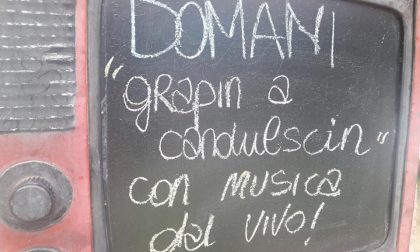 DOMANI
"grapin a
canduelscin"
con MUSICA
dal VIVO!